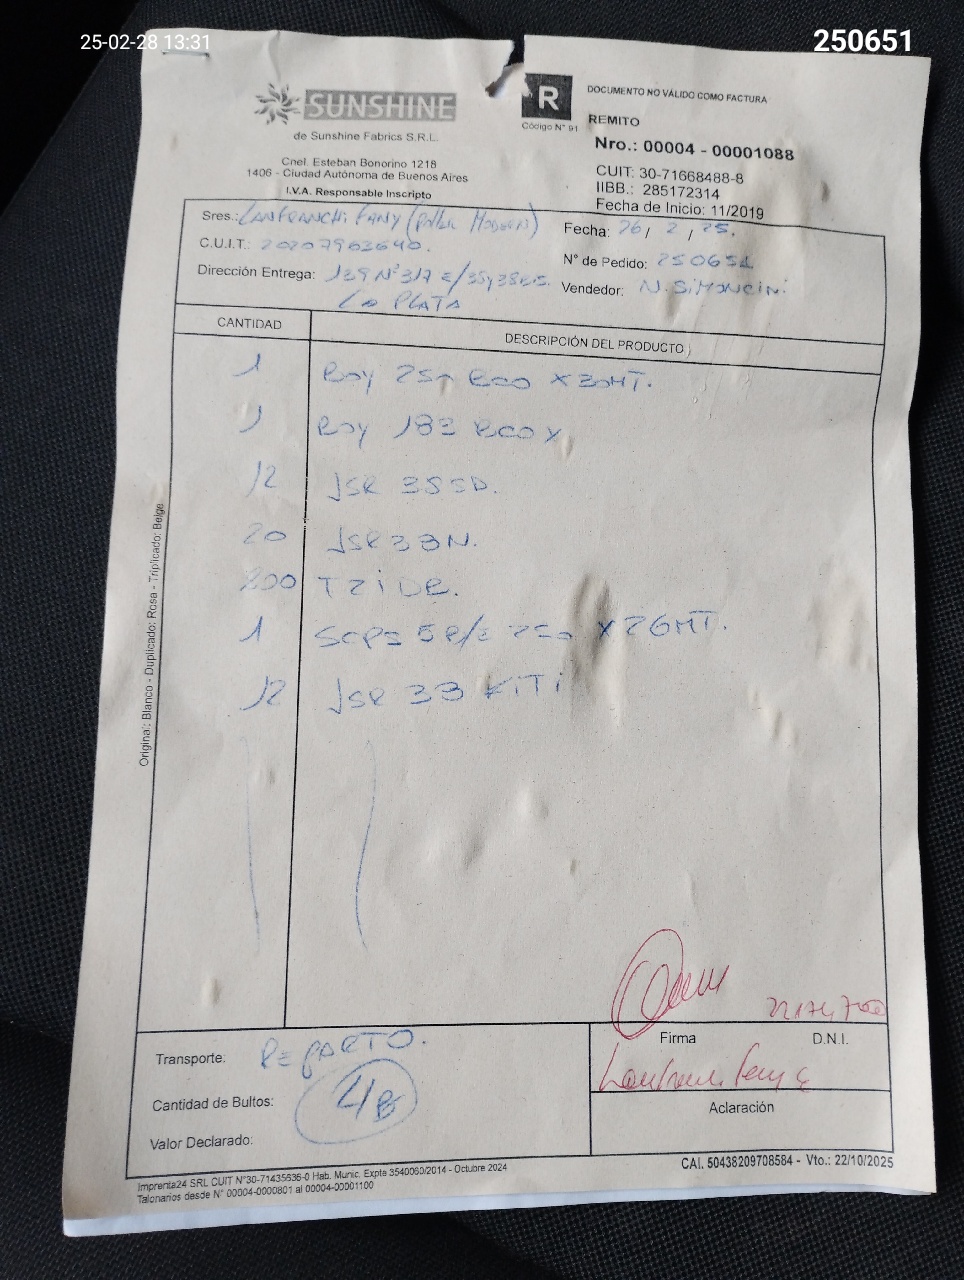 25-02-28 13:31
250651
SUNSHINE
de Sunshine Fabrics S.R.L.
Cnel. Esteban Bonorino 1218
1406 - Ciudad Autónoma de Buenos Aires
I.V.A. Responsable Inscripto
R
Código N° 91
DOCUMENTO NO VÁLIDO COMO FACTURA
REMITO
Nro.: 00004 - 00001088
CUIT: 30-71668488-8
IIBB.: 285172314
Fecha de Inicio: 11/2019
Sres.: LANFRANCHI FANY
Fecha: 26/ 2 / 25.
C.U.I.T.: 20207963640.
N° de Pedido: 250651
Dirección Entrega: 139 N°317 e/
Vendedor: N. SIMONCINI
LA PLATA
CANTIDAD
DESCRIPCIÓN DEL PRODUCTO
1 ROY 250 ECO X30MT.
1 ROY 183 ECO X
12 JSR 38SD.
20 JSR 33N.
200 T
1 SCPS 5 250 X26MT.
12 JSR 33 KITI
Original: Blanco - Duplicado: Rosa - Triplicado: Beige
Firma
D.N.I.
Aclaración
Transporte: REPARTO.
Cantidad de Bultos: 4B
Valor Declarado:
Imprenta24 SRL CUIT N°30-71435636-0 Hab. Munic. Expte 3540060/2014 - Octubre 2024
Talonarios desde N° 00004-0000801 al 00004-00001100
CAI. 50438209708584 - Vto.: 22/10/2025